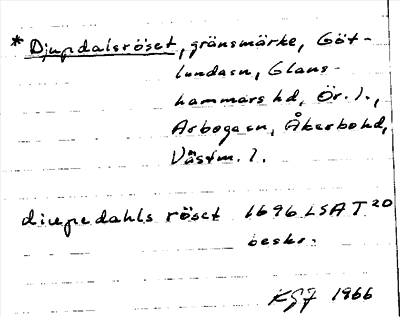 * Djupdalsröset, gränsmärke, Göt-
lundasn, Glans-
hammars hd, Ör. l.,
Arbogasn, Åkerbohd,
Västm. l.
diupedahls röset 1696 LSA T 20
beskr.
KGF 1966